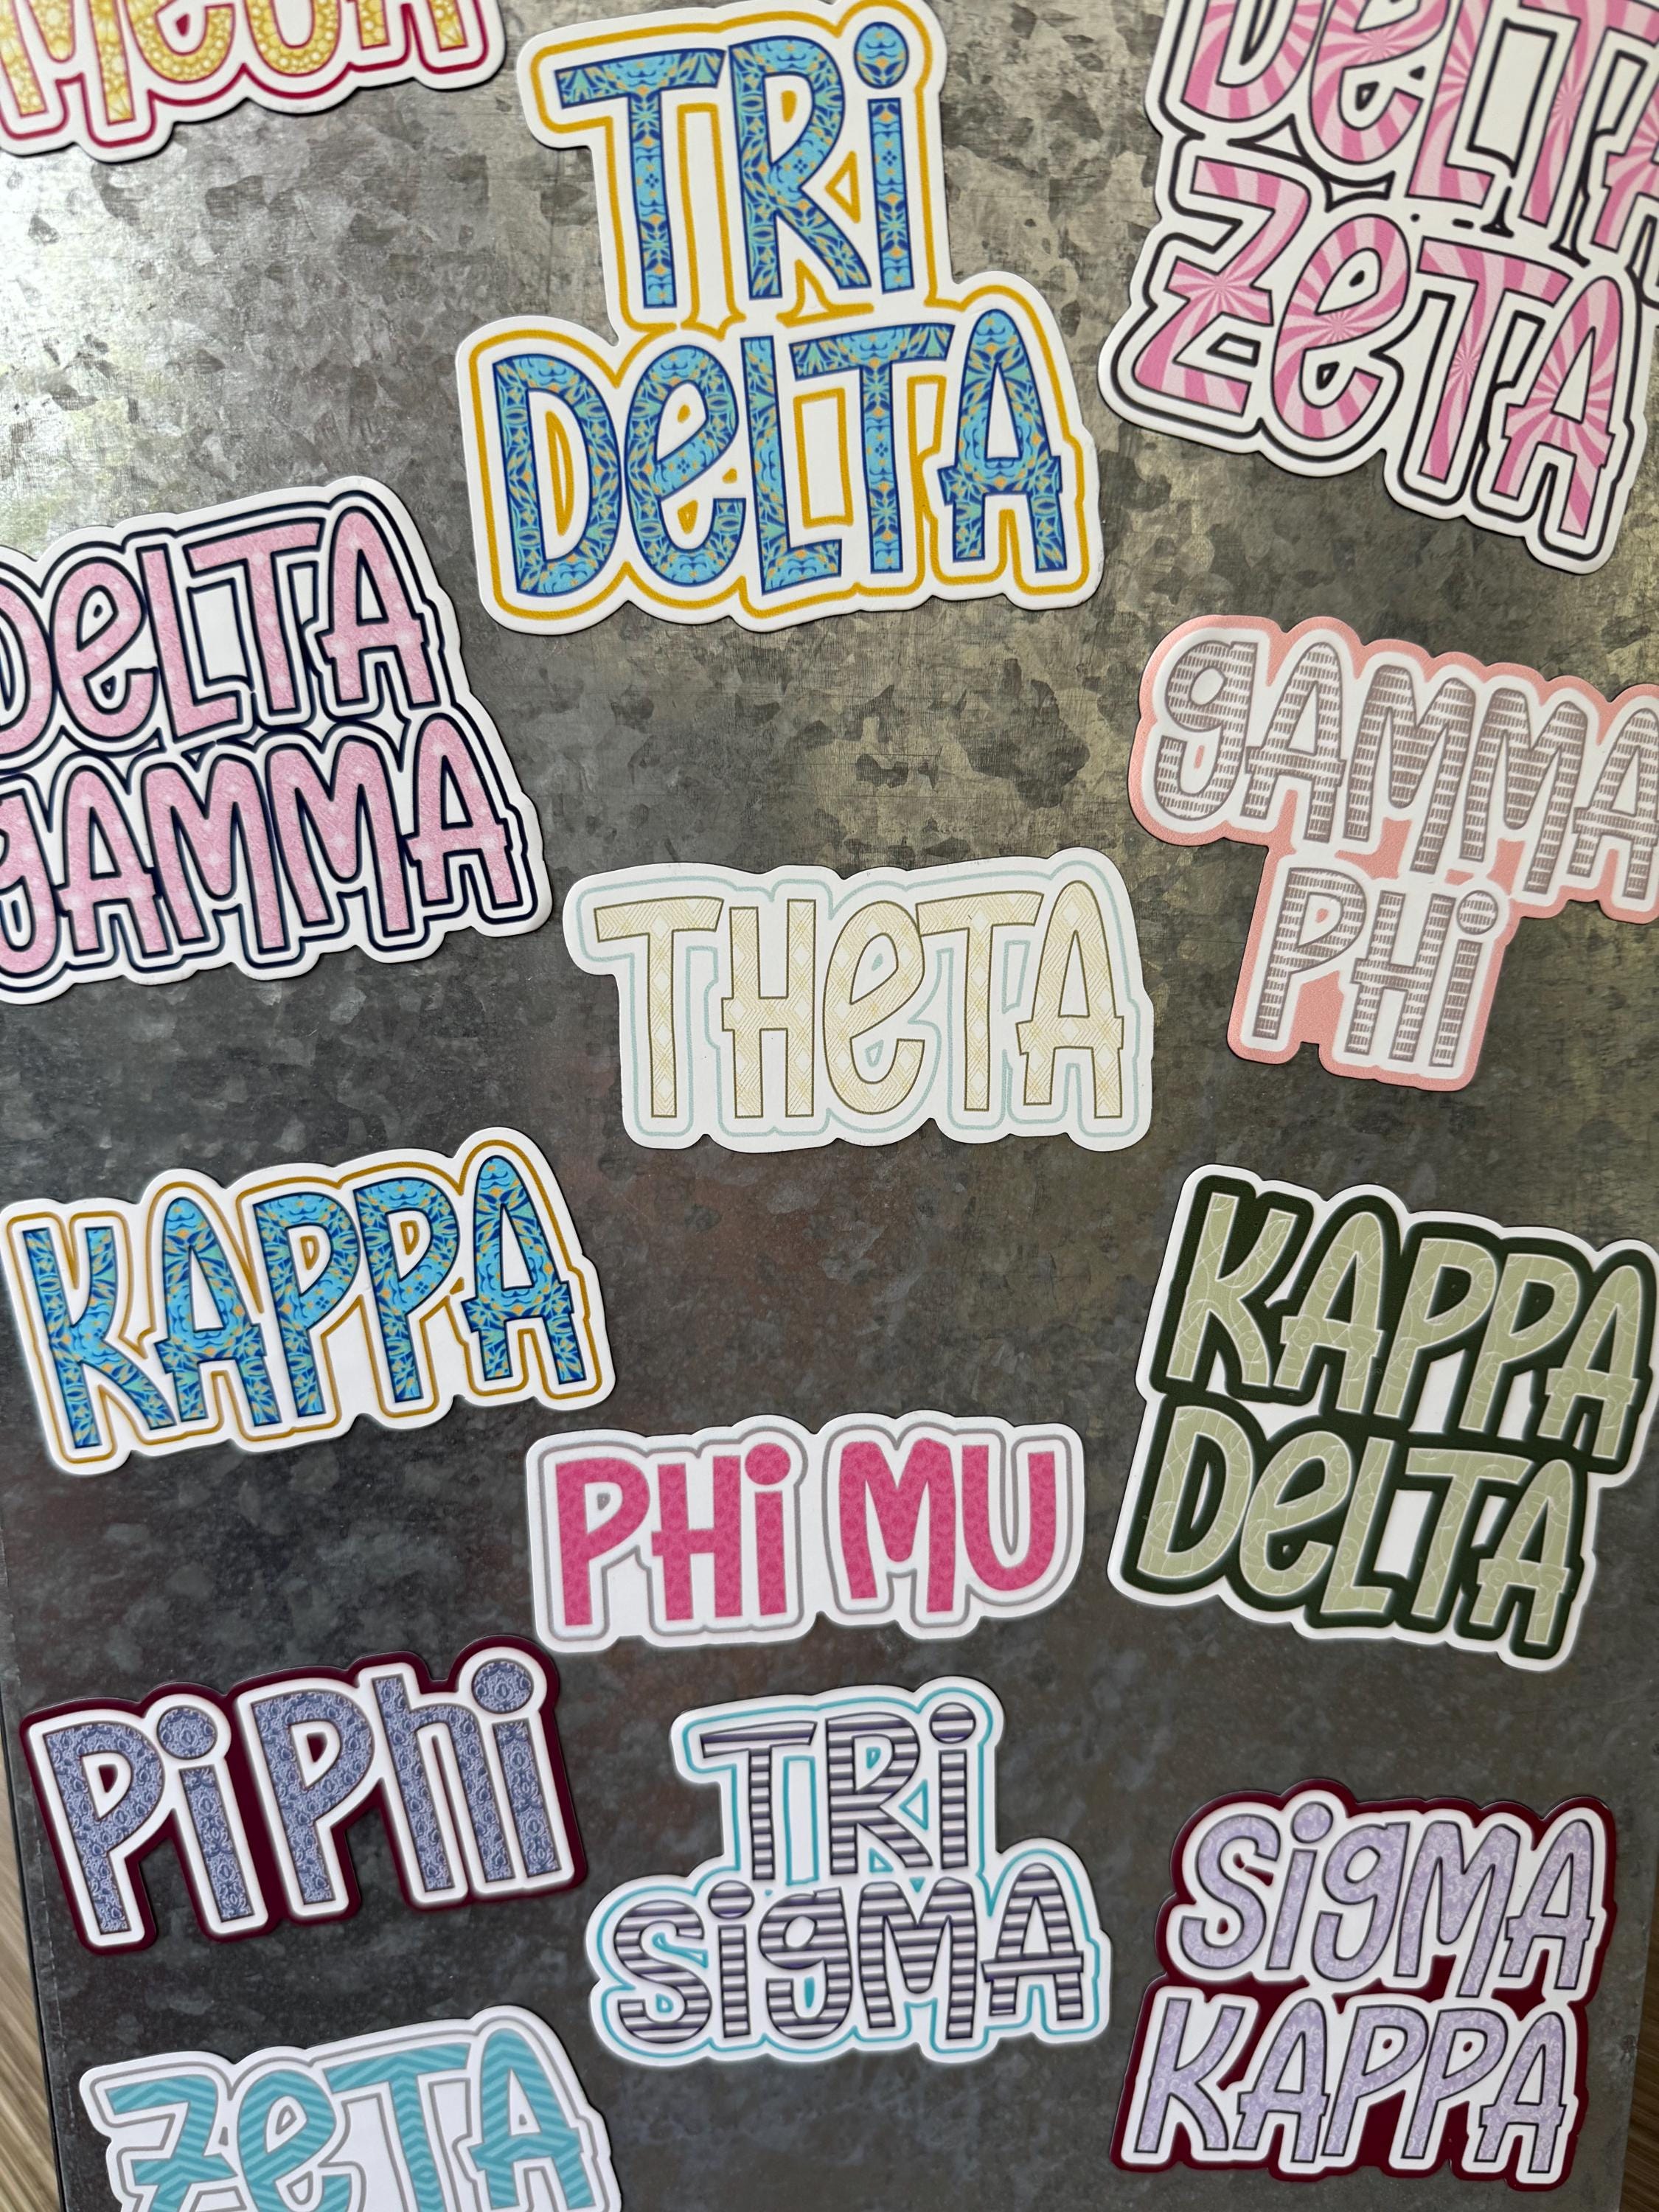 TRi
DeLTA
DeLTA
ZeTA
DeLTA
gAMMA
gAMMA
PHi
THeTA
KAPPA
KAPPA
DeLTA
PHi MU
Pi Phi
TRi
SigMA
SigMA
KAPPA
ZeTA